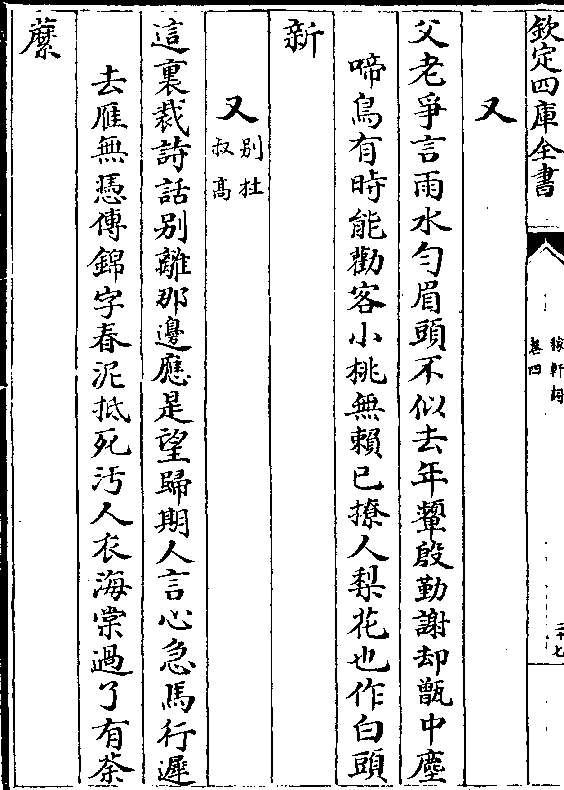 欽定四庫全書
稼軒詞
卷四
二十七
又
父老爭言雨水勻眉頭不似去年顰殷勤謝却甑中塵
啼鳥有時能勸客小桃無賴已撩人梨花也作白頭
新
又
别杜
叔高
這裏裁詩話别離那邊應是望歸期人言心急馬行遲
去雁無憑傳錦字春泥抵死汚人衣海棠過了有荼
蘼